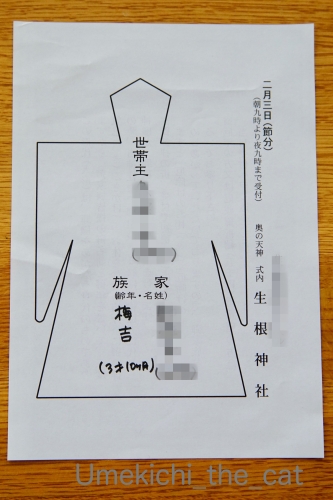 二月三日(節分)
(朝九時より夜九時まで受付)
奥の天神 式内 生根神社
世帯主
族家
(齢年・名姓)
梅吉
(3才10ヵ月)
Umekichi_the_cat